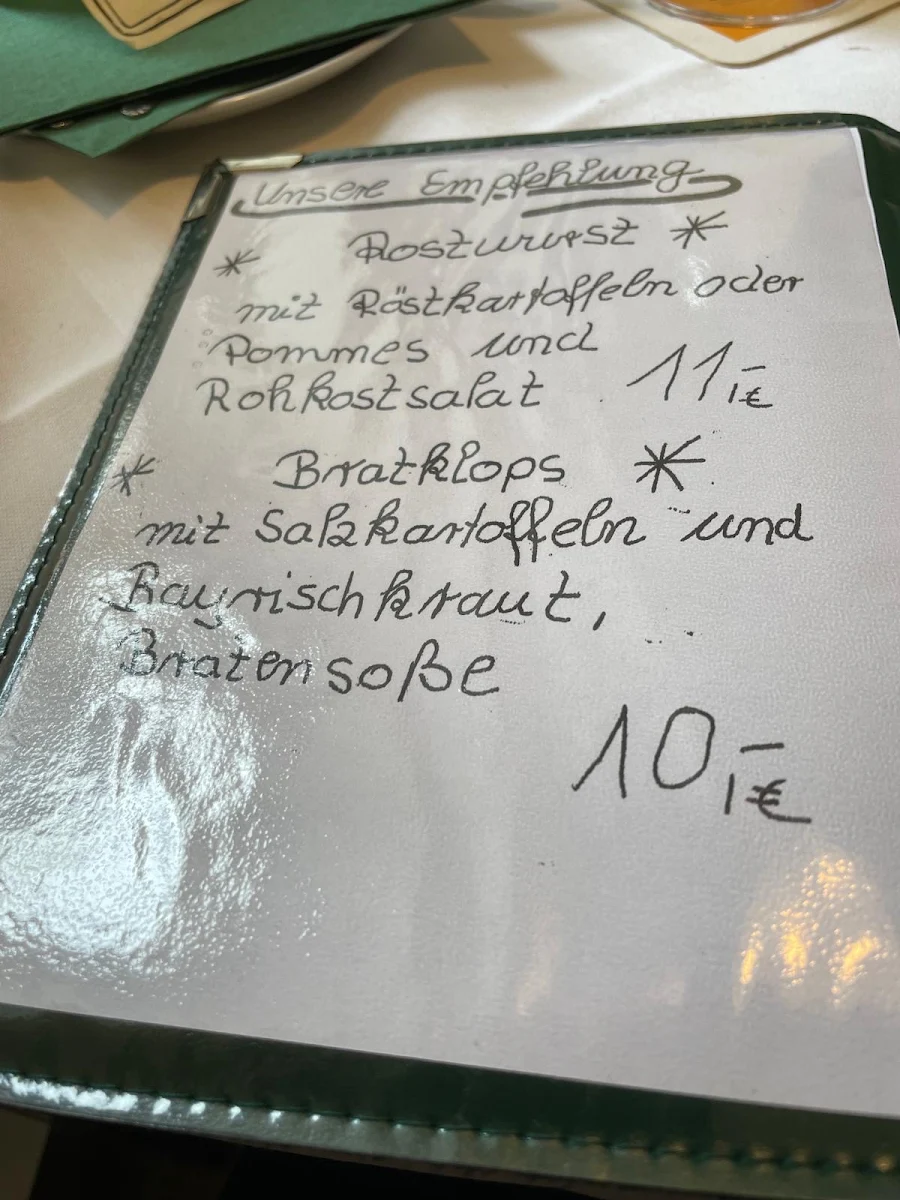 Unsere Empfehlung
* Rostwurst *
mit Röstkartoffeln oder
Pommes und
Rohkostsalat 11,-€
* Bratklops *
mit Salzkartoffeln und
Bayrischkraut,
Bratensoße
10,-€